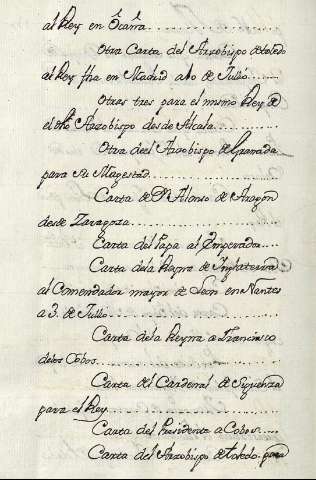 al Rey en Ocaña
Otra Carta del Arzobispo de toledo
al Rey fha en Madrid a 10 de Julio
Otras tres para el mismo Rey de
el dho Arzobispo desde Alcala
Otra del Arzobispo de Granada
para Su Magestad
Carta de Dn Alonso de Aragon
desde Zaragoza
Carta del Papa al Emperador
Carta dela Rayna de Inglaterra
al Comendador mayor de Leon en Nantes
a 3. de Jullo
Carta dela Reyna a Francisco
delos Cobos
Carta del Cardenal de Siguenza
para el Rey
Carta del Presidente a Cobos
Carta del Arzobispo de toledo para